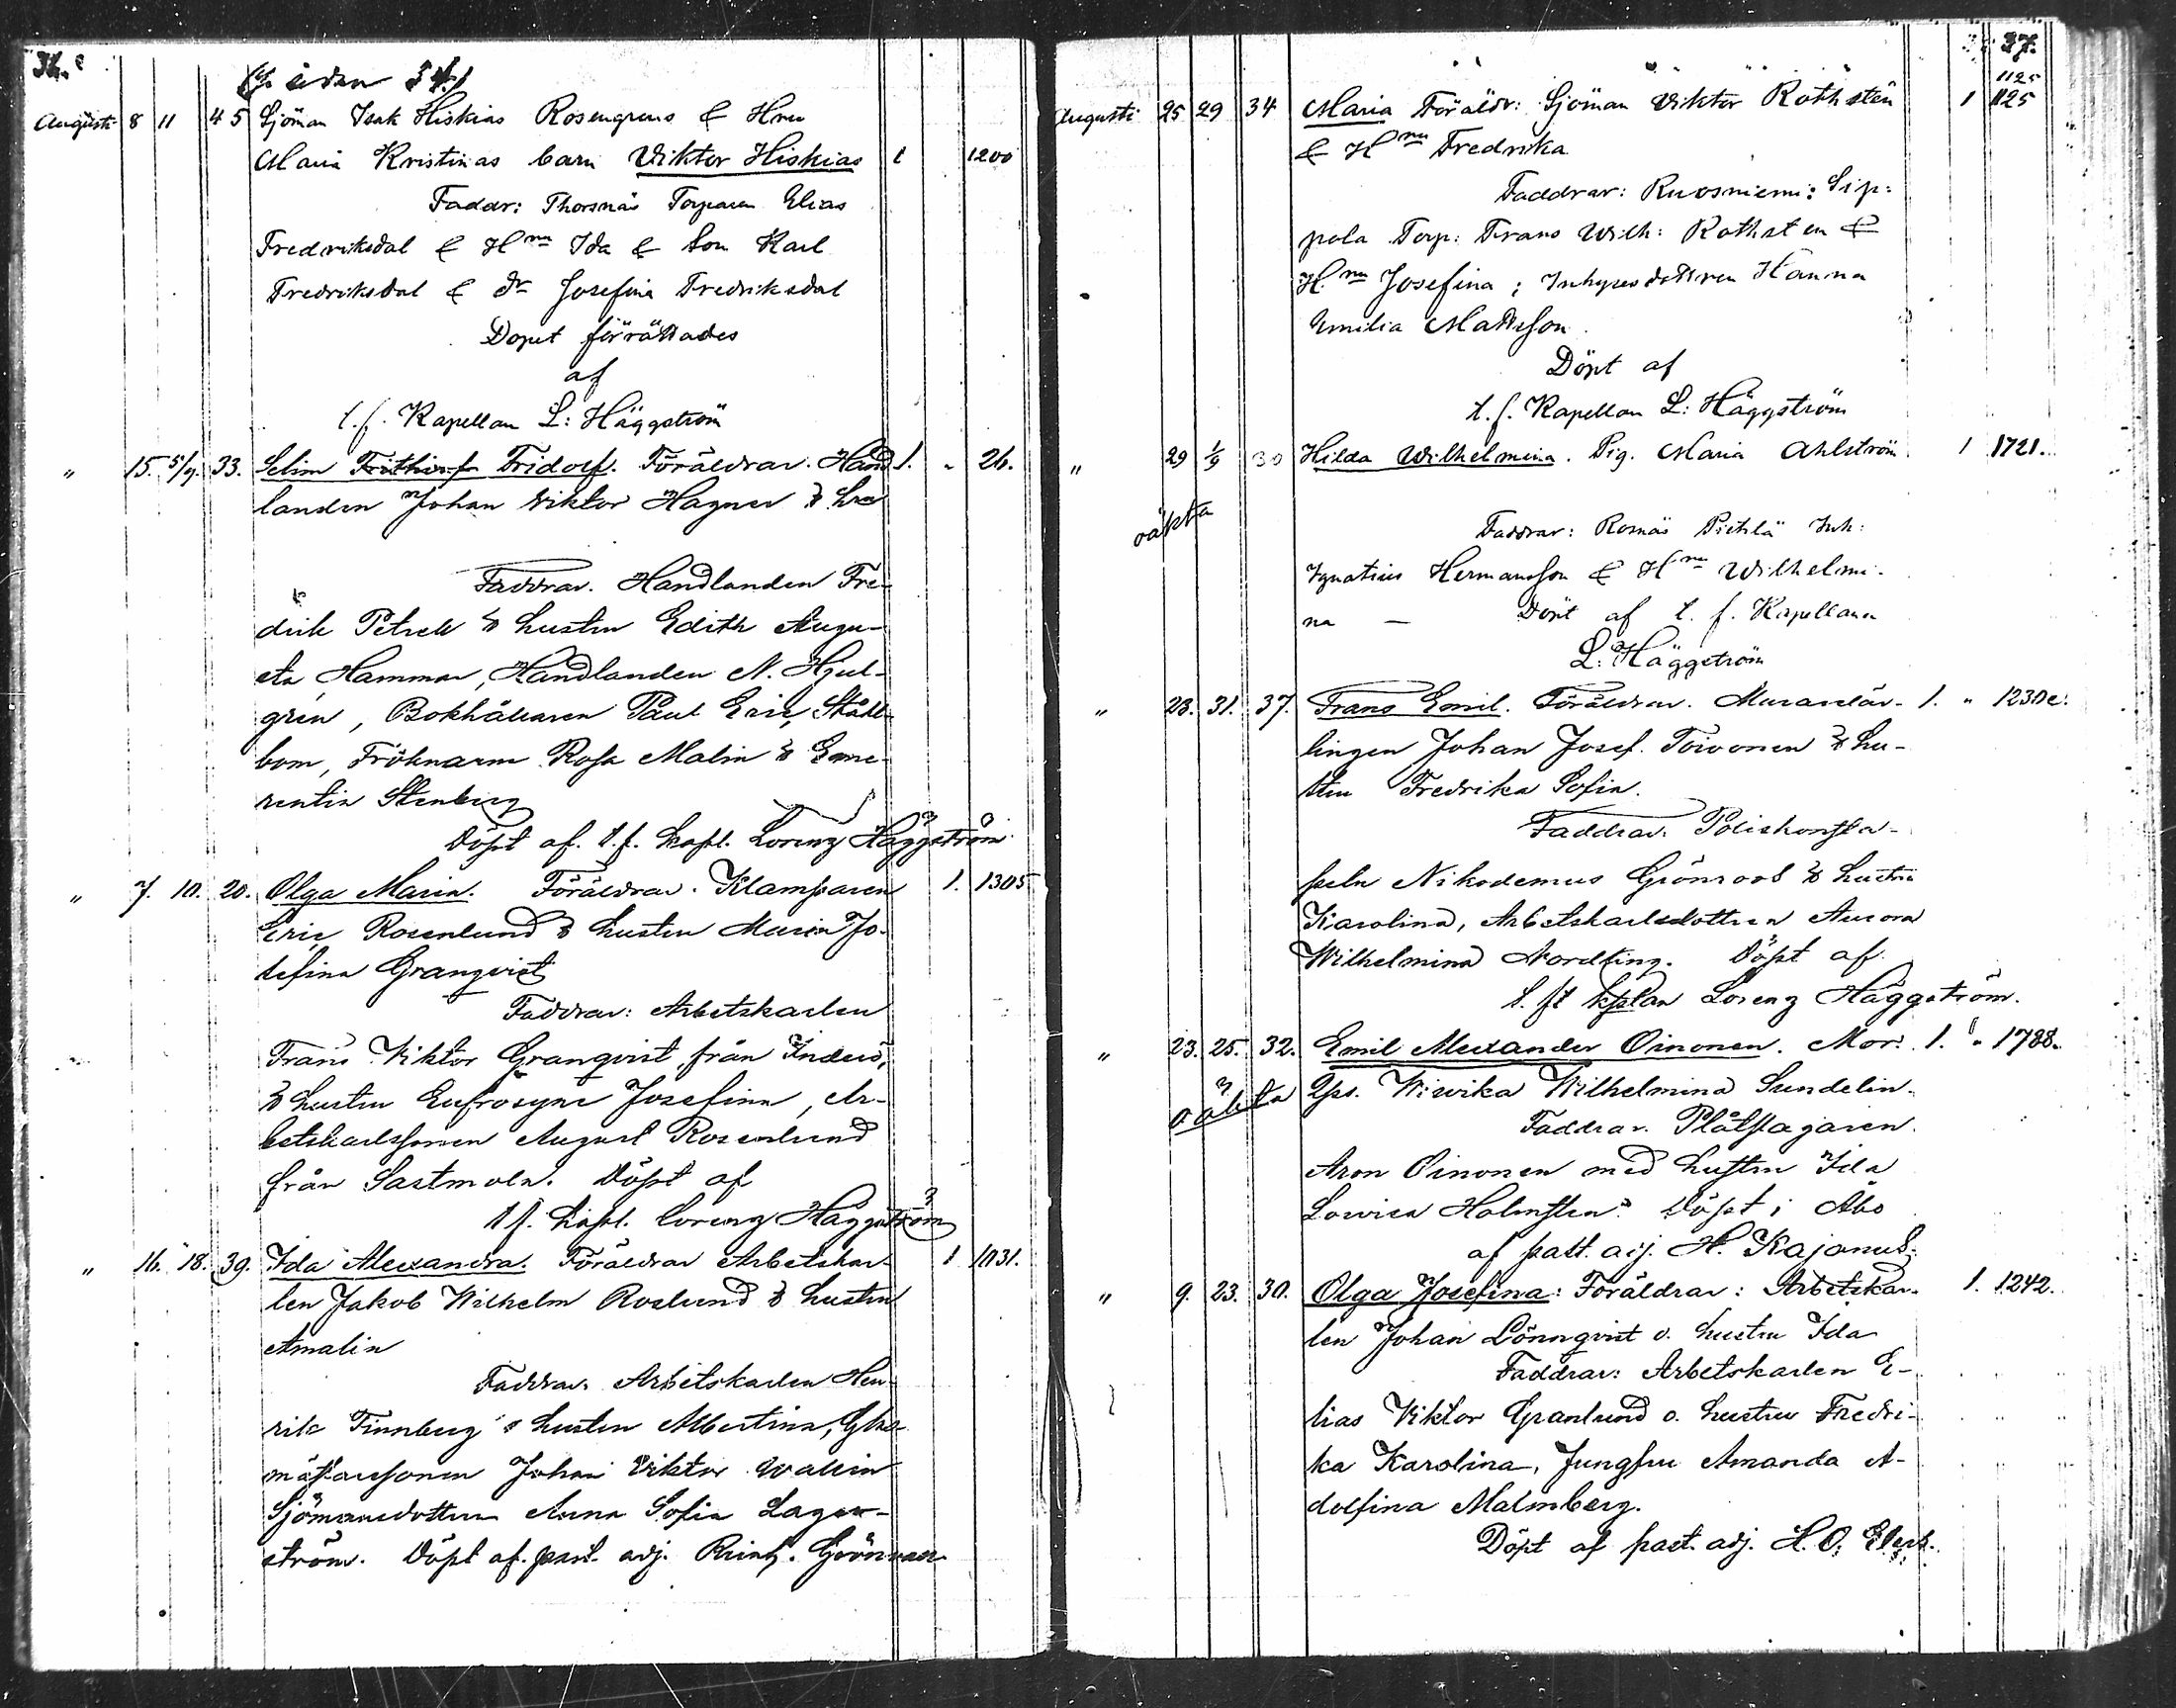 36.
(g. sidan 34.)
Augusti 8 11 45 Sjöman Isak Hiskias Rosengrens & Hru
Maria Kristinas barn Viktor Hiskias 1 1200
Faddr: Thorsnäs Torparen Elias
Fredriksdal & Hru Ida & Son Karl
Fredriksdal & dr Josefina Fredriksdal
Dopet förrättades
af
t. f. Kapellan L: Häggström
" 15. 5/9. 33. Selim Frithiof Fridolf. Föräldrar. Hand 1. " 26.
landen Johan Viktor Hagner & hru
Faddrar. Handlanden Fre-
drik Petrell & hustru Edith Augu-
sta Hammar, Handlanden N. Hjul-
grén, Bokhållaren Paul Eric Ståhl-
bom, Fröknarne Rosa Malin & Eme-
rentia Stenberg
Döpt af. t. f. kapl. Lorenz Häggström
" 7. 10. 20. Olga Maria. Föräldrar. Klamparen 1. 1305
Eric Rosenlund & hustru Maria Jo-
sefina Granqvist
Faddrar: Arbetskarlen
Frans Viktor Granqvist från Inderö,
& hustru Eufrosyne Josefina, Ar-
betskarlssonen August Rosenlund
från Sastmola. Döpt af
t f. kapl. Lorenz Häggström
" 16. 18. 39. Ida Alexandra. Föräldrar Arbetskar- 1 1031.
len Jakob Wilhelm Roslund & hustru
Amalia
Faddrar. Arbetskarlen Hen-
rik Finnberg & hustru Albertina, Glas-
mästaressonen Johan Viktor Wallin
Sjömansdottern Anna Sofia Lager-
ström. Döpt af. past. adj. Grönvall
37.
1125
Augusti 25 29 34 Maria Föräldr: Sjöman Viktor Rothstén 1 1125
& Hru Fredrika
Faddrar: Ruosniemi: Sip-
pola Torp: Frans Wilh: Rothsten &
Hru Josefina; Inhysesdottren Hanna
Emilia Mattsson.
Döpt af
t. f. Kapellan L: Häggström
" 29 1/9 30 Hilda Wilhelmina. Pig. Maria Ahlström 1 1721.
oäkta
Faddrar: Romäs Pietilä Inh:
Ignatius Hermansson & Hru Wilhelmi-
na — Döpt af t. f. Kapellanen
L: Häggström
" 28. 31. 37. Frans Emil. Föräldrar. Murarelär- 1. " 1230c.
lingen Johan Josef Toivonen & hu-
stru Fredrika Sofia.
Faddrar. Poliskonsta-
peln Nikodemus Grönroos & hustru
Karolina, Arbetskarlsdottren Aurora
Wilhelmina Nordling. Döpt af
t. f. kplan Lorenz Häggström.
" 23. 25. 32. Emil Alexander Oinonen. Mor: 1. " 1788.
oäkta Qps. Wiwika Wilhelmina Sundelin.
Faddrar. Plåtslagaren
Aron Oinonen med hustru Ida
Lovisa Holmsten. Döpt i Åbo
af past. adj. H. Kajanus.
" 9. 23. 30. Olga Josefina: Föräldrar: Arbetskar- 1. 1242.
len Johan Lönnqvist o. hustru Ida
Faddrar: Arbetskarlen E-
lias Viktor Granlund o. hustru Fredri-
ka Karolina, Jungfru Amanda A-
dolfina Malmberg.
Döpt af past. adj. H. O.